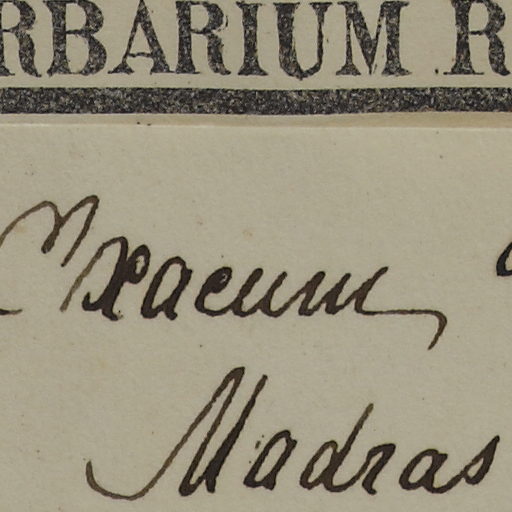 RBARIUM R
Exacum
Madras